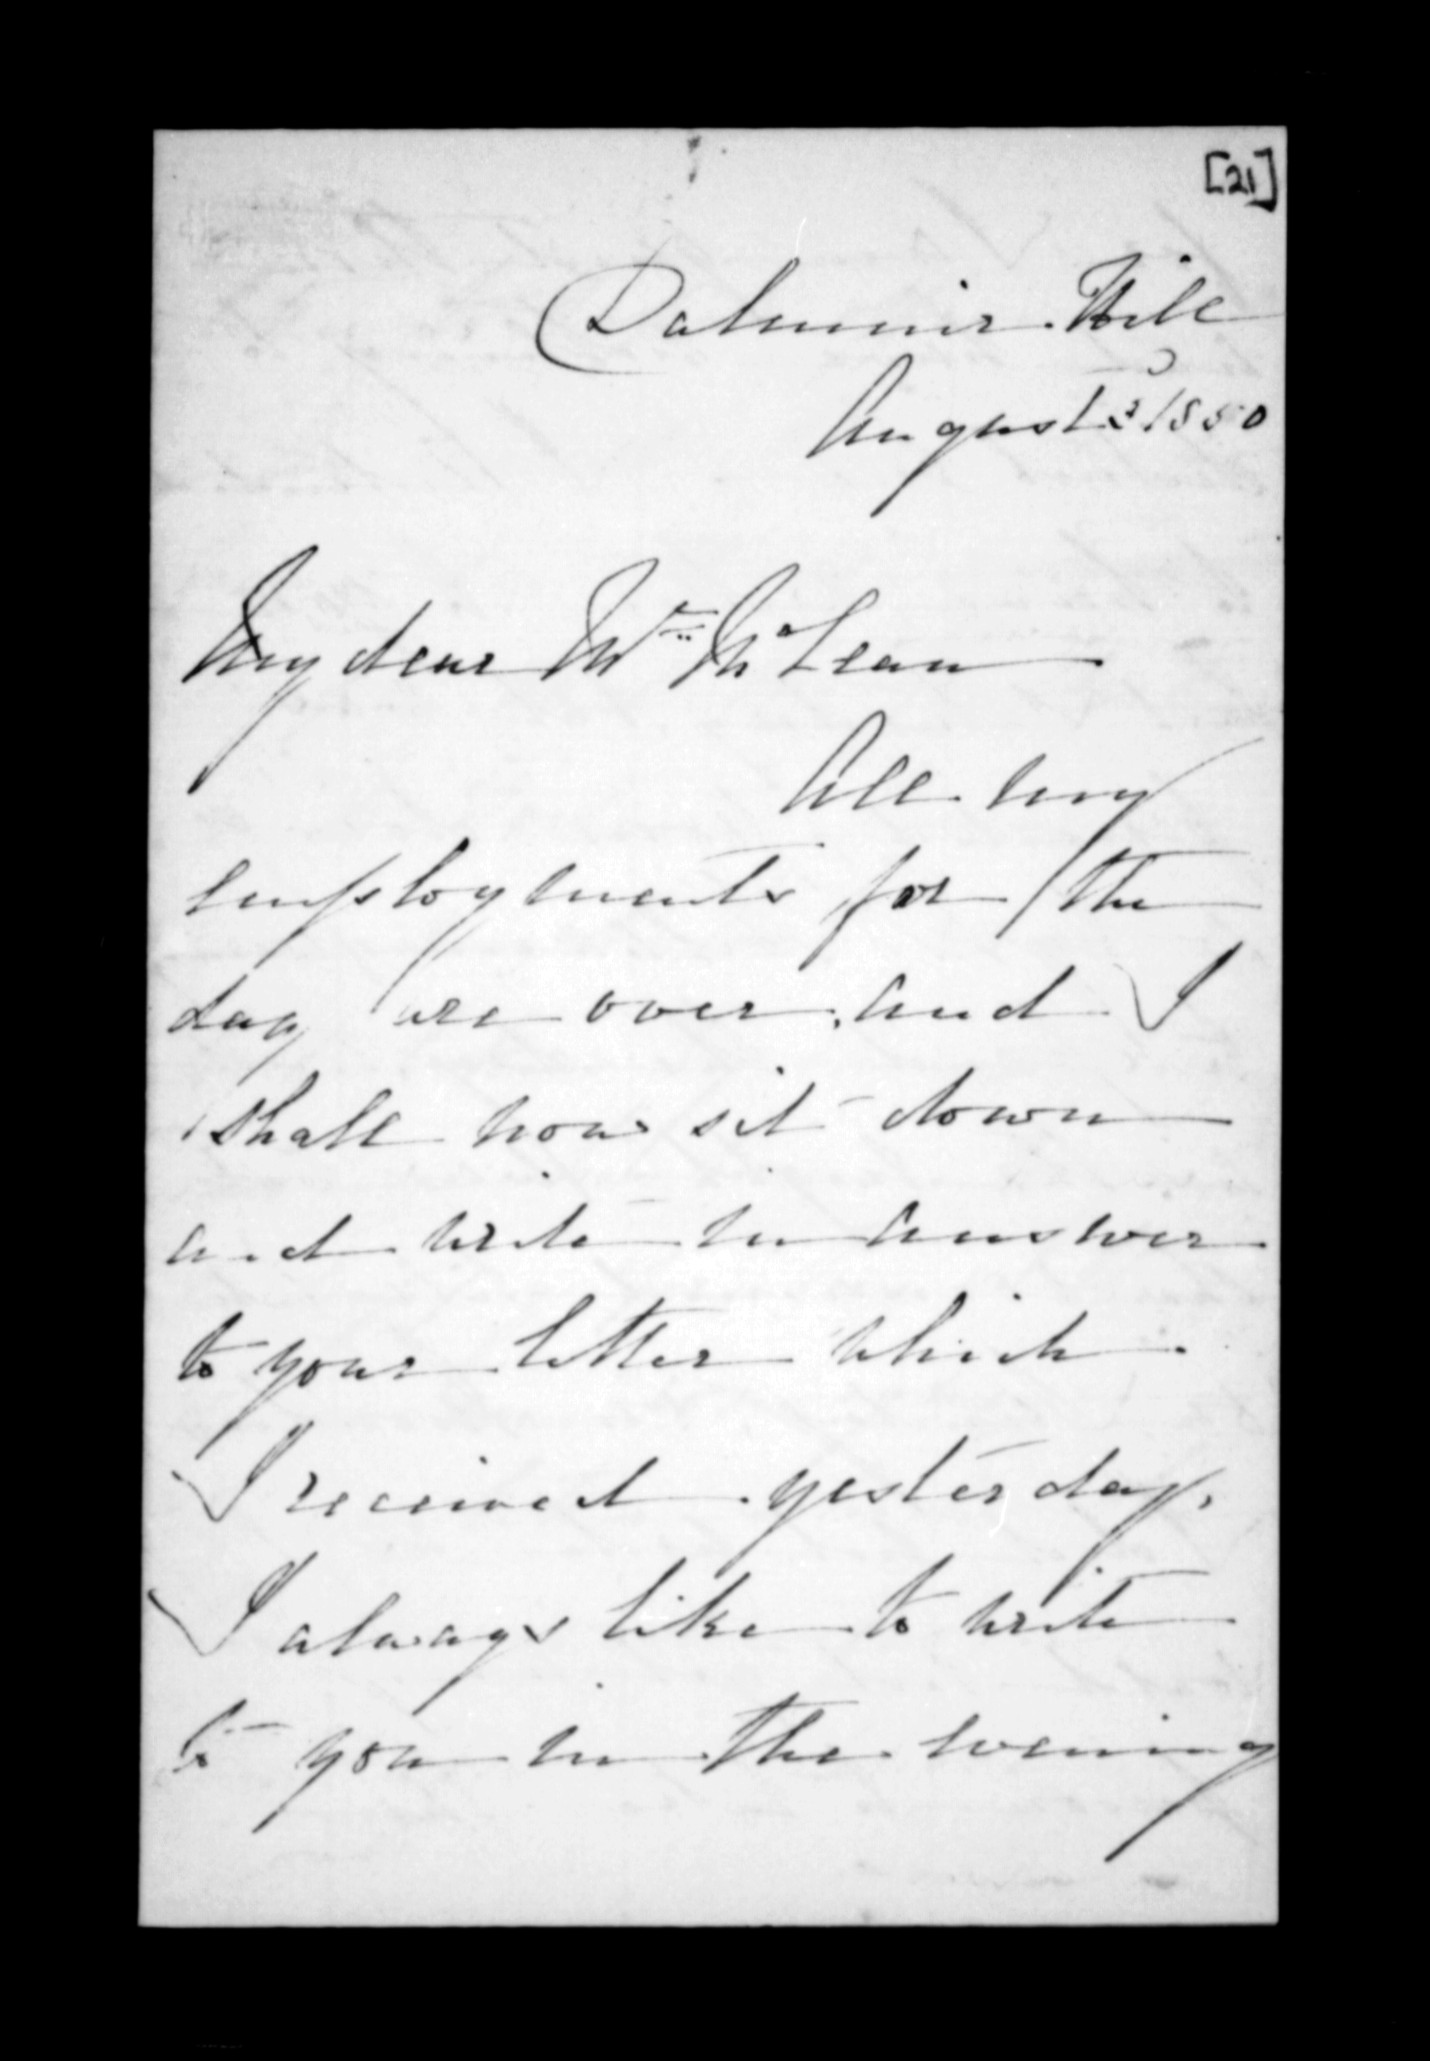 [21]
Dalmuir Hill
August 3 1850
My dear Mr McLean
All my
employments for the
day are over, and I
shall now sit down
and write in answer
to your letter which
I received yesterday,
I always like to write
to you in the evening